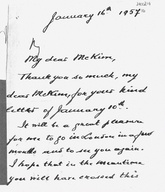 January 16th 1957
My dear McKim,
Thank you so much, my
dear McKim, for your kind
letter of January 10th.
It will be a great pleasure
for me to go to London in a few
months and to see you again.
I hope that in the meantime
you will have crossed this